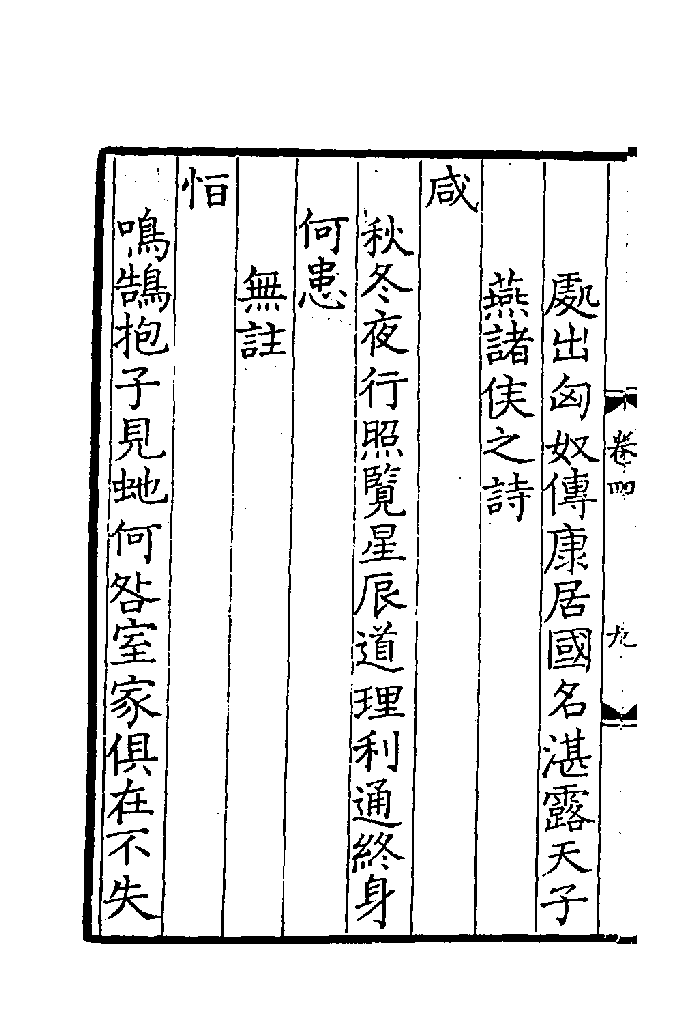 卷四
九
處出匈奴傳康居國名湛露天子
燕諸侯之詩
咸
秋冬夜行照覽星辰道理利通終身
何患
無註
恒
鳴鵠抱子見虵何咎室家俱在不失